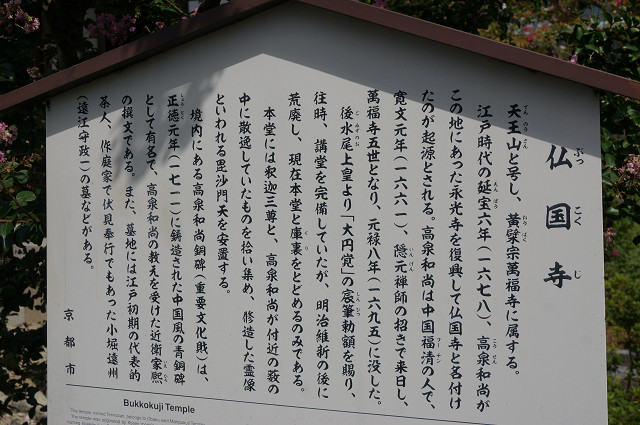 仏国寺
ぶっこくじ
天王山と号し、黄檗宗萬福寺に属する。
てんのうざん おうばく
江戸時代の延宝六年（一六七八）、高泉和尚が
えんぽう こうせん
この地にあった永光寺を復興して仏国寺と名付け
たのが起源とされる。高泉和尚は中国福清の人で、
フーチン
寛文元年（一六六一）、隠元禅師の招きで来日し、
いんげん
萬福寺五世となり、元禄八年（一六九五）に没した。
後水尾上皇より「大円覚」の宸筆勅額を賜り、
ごみずのお しんぴつ
往時、講堂を完備していたが、明治維新の後に
荒廃し、現在本堂と庫裏をとどめるのみである。
本堂には釈迦三尊と、高泉和尚が付近の薮の
中に散逸していたものを拾い集め、修造した霊像
といわれる毘沙門天を安置する。
境内にある高泉和尚銅碑（重要文化財）は、
正徳元年（一七一一）に鋳造された中国風の青銅碑
しょうとく
として有名で、高泉和尚の教えを受けた近衛家熈
いえひろ
の撰文である。また、墓地には江戸初期の代表的
茶人、作庭家で伏見奉行でもあった小堀遠州
（遠江守政一）の墓などがある。
京都市
Bukkokuji Temple